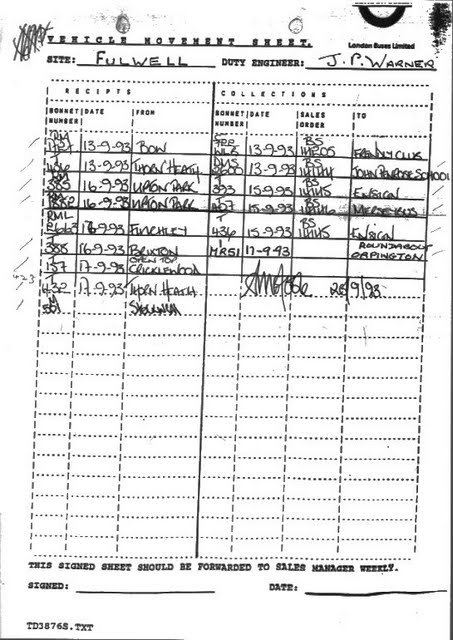 London Buses Limited
VEHICLE MOVEMENT SHEET.
SITE: FULWELL DUTY ENGINEER: J.P. WARNER
RECEIPTS COLLECTIONS
BONNET NUMBER DATE FROM BONNET NUMBER DATE SALES ORDER TO
13-9-93 BOW 13-9-93 BS FRIENDLY CLUB
13-9-93 THORN HEATH DMS 13-9-93 BS JOHN PENROSE SCHOOL
385 16-9-93 UPTON PARK 393 15-9-93 BS ENSIGN
16-9-93 UPTON PARK 15-9-93 BS MERSEYBUS
RML 16-9-93 FINCHLEY T 436 15-9-93 BS ENSIGN
388 16-9-93 BRIXTON MRS1 17-9-93 ROUNDABOUT ORPINGTON
T 157 17-9-93 OPEN TOP CRICKLEWOOD
T 432 17-9-93 THORN HEATH
THIS SIGNED SHEET SHOULD BE FORWARDED TO SALES MANAGER WEEKLY.
SIGNED: DATE:
TD3876S.TXT